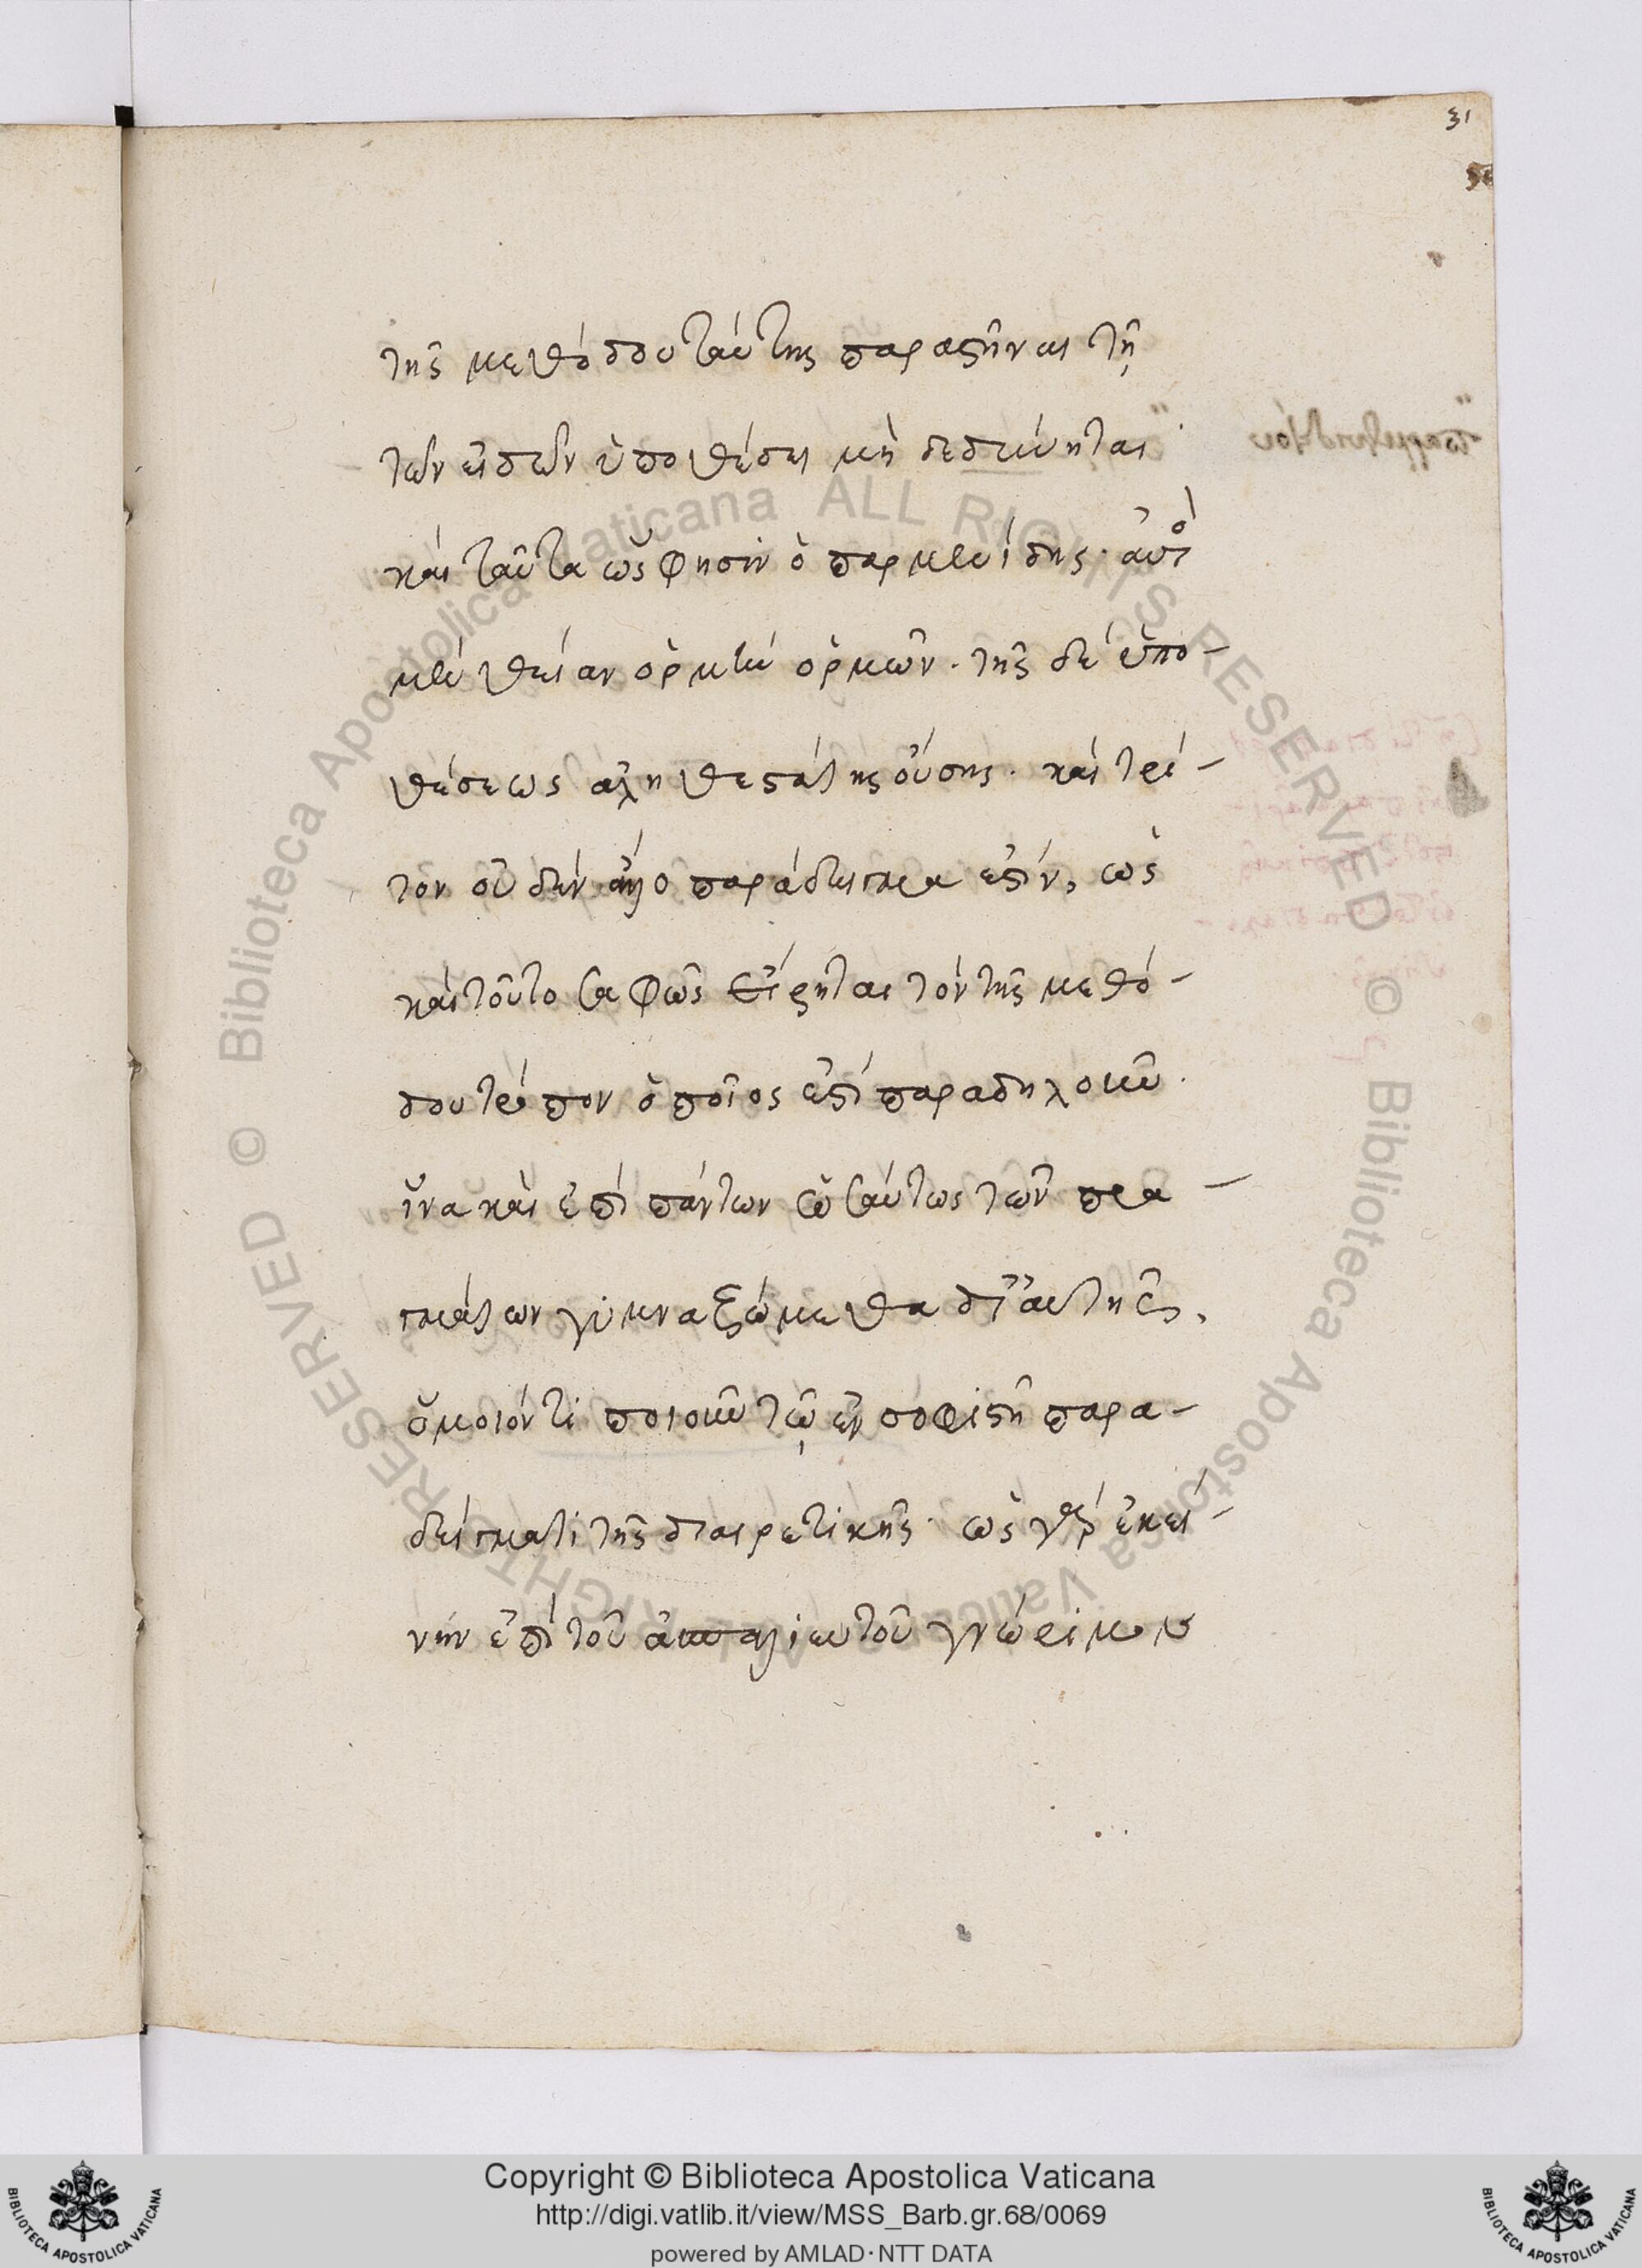 31
τῆς μεθόδου ταύτης παραστῆναι τῇ
τῶν εἰδῶν ὑποθέσει μὴ δεδύνηται
καὶ ταῦτα ὥς φησιν ὁ παρμενίδης· αὐτὸ
μὲν θείαν ὁρμὴν ὁρμῶν· τῆς δὲ ὑπο-
θέσεως ἀληθεστάτης οὔσης· καὶ τρί-
τον οὐδὲν ἄλλο παράδειγμα ἐστίν, ὡς
καὶ τοῦτο σαφῶς εἴρηται τὸν τῆς μεθό-
δου τρόπον ὁποῖος ἐστὶ παραδηλοῦν·
ἵνα καὶ ἐπὶ πάντων ὡσαύτως τῶν πρα-
γμάτων γυμναζώμεθα δι' αὐτῆς,
ὅμοιόν τι ποιοῦν τῷ ἐν σοφιστῇ παρα-
δείγματι τῆς διαιρετικῆς· ὡς γὰρ ἐκεί-
νην ἐπὶ τοῦ ἀσπαλιευτοῦ γνώριμον
Copyright © Biblioteca Apostolica Vaticana
http://digi.vatlib.it/view/MSS_Barb.gr.68/0069
powered by AMLAD·NTT DATA
BIBLIOTECA APOSTOLICA VATICANA
BIBLIOTECA APOSTOLICA VATICANA
© Biblioteca Apostolica Vaticana ALL RIGHTS RESERVED © Biblioteca Apostolica Vaticana ALL RIGHTS RESERVED